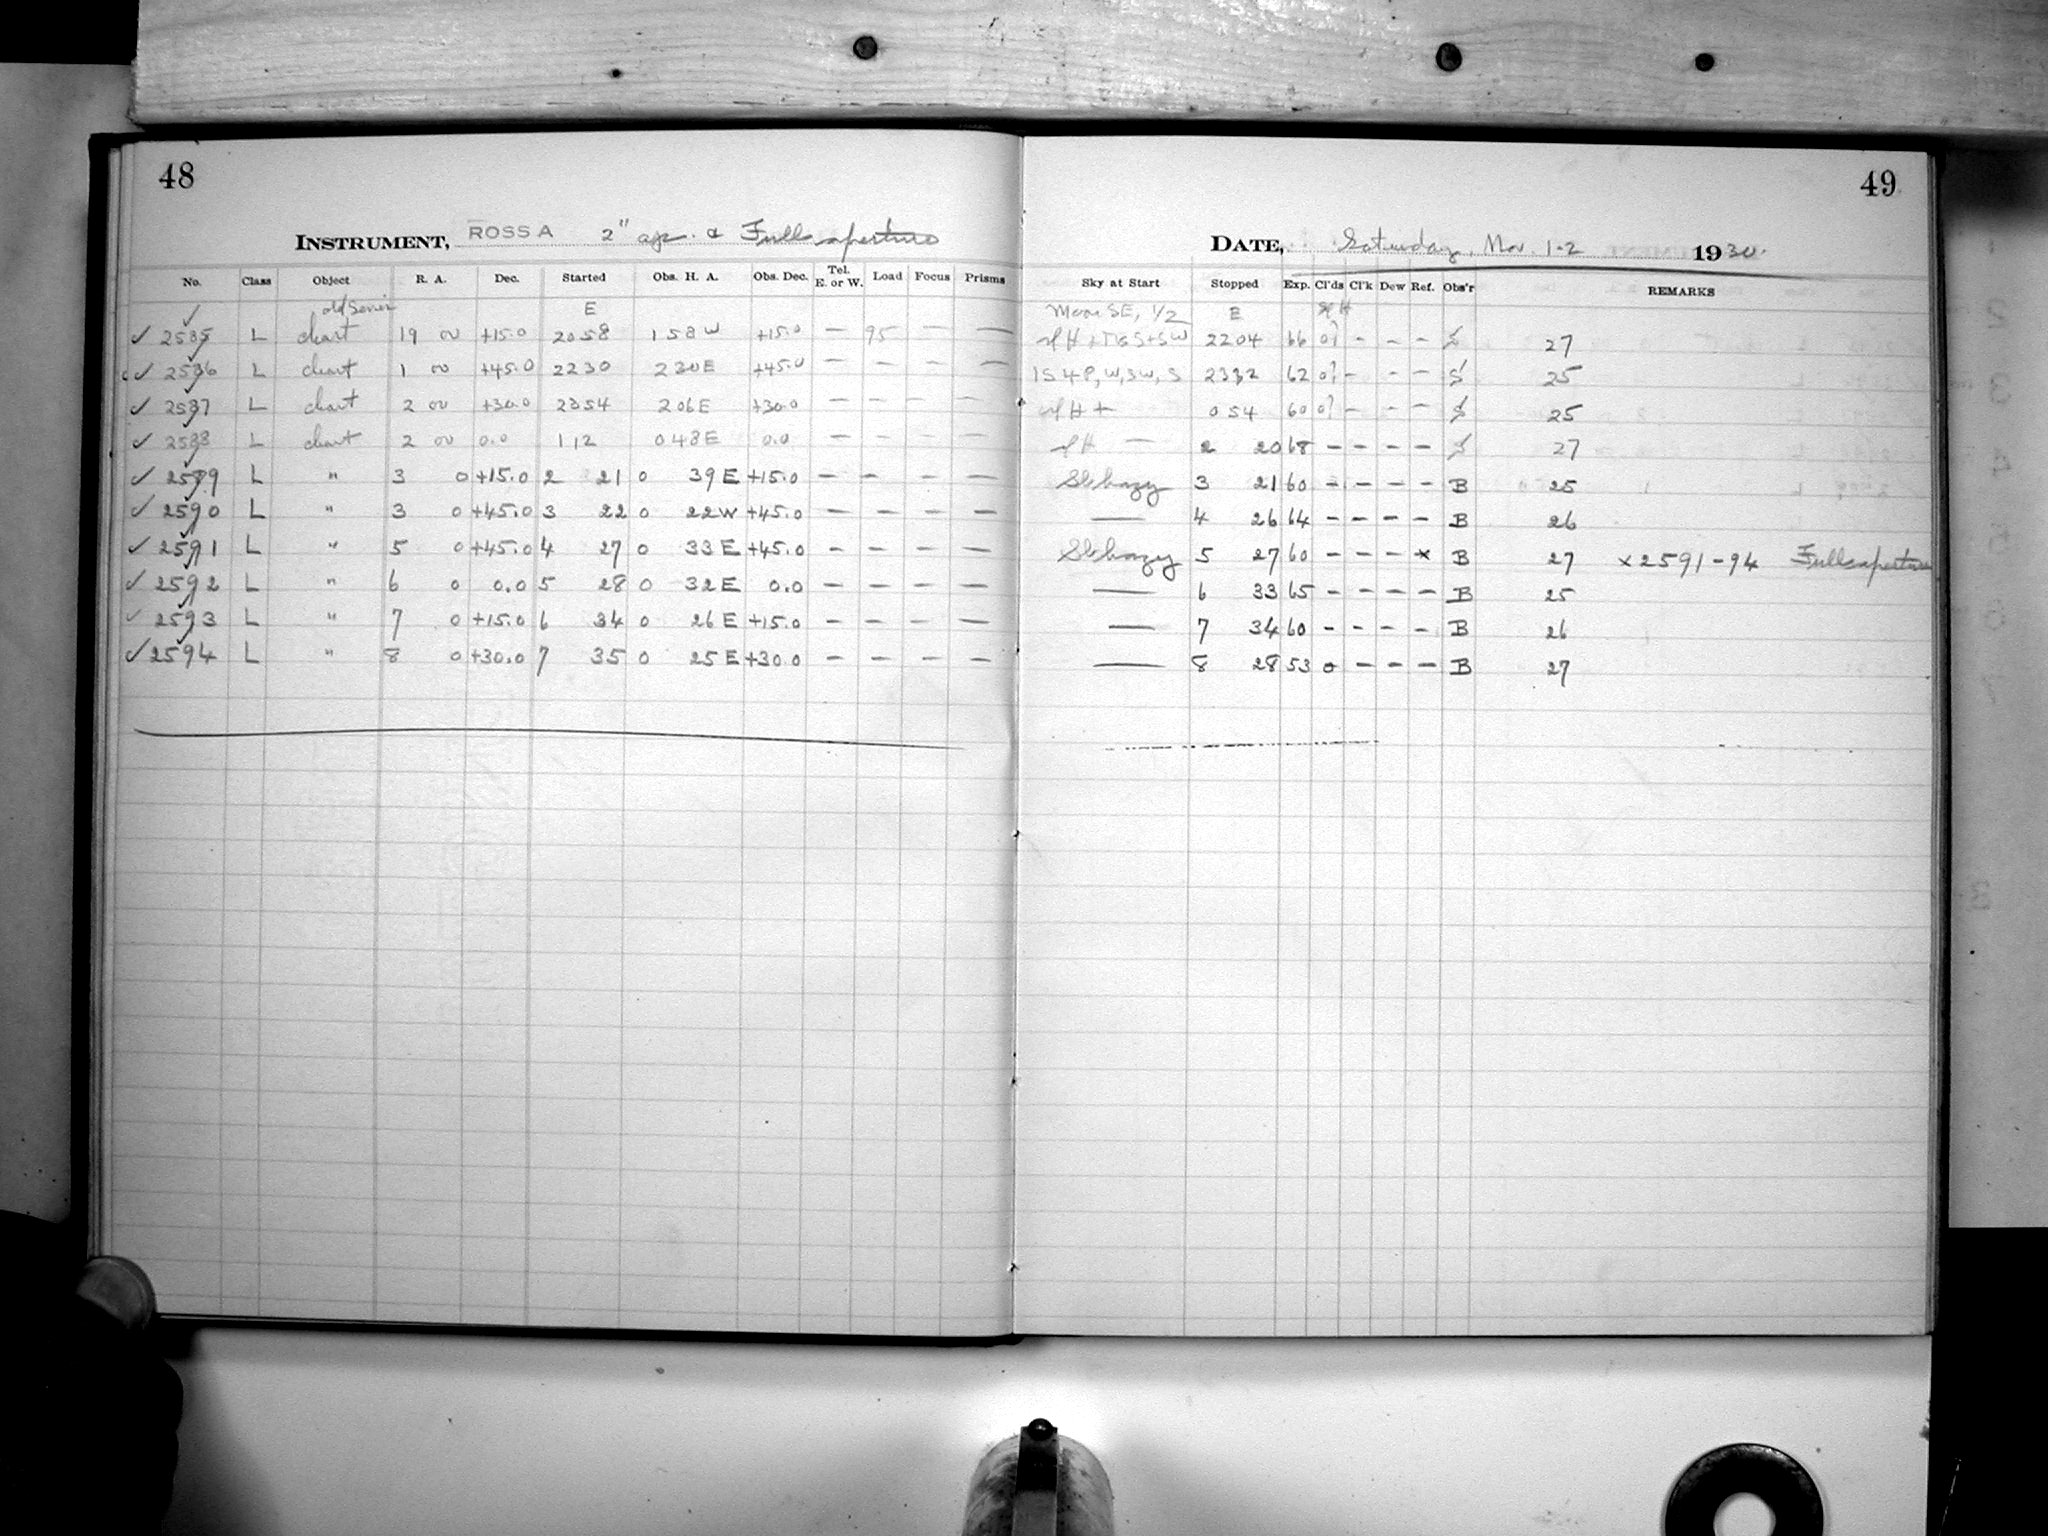 48
INSTRUMENT, ROSS A 2" ap. & Full aperture
No. Class Object R. A. Dec. Started Obs. H. A. Obs. Dec. Tel. E. or W. Load Focus Prisms
old Series E
✓ 2585 L chart 19 00 +15.0 2058 158 W +15.0 — 95 — —
✓ 2586 L chart 1 00 +45.0 2230 230 E +45.0 — — — —
✓ 2587 L chart 2 00 +30.0 2354 206 E +30.0 — — — —
✓ 2588 L chart 2 00 0.0 112 048 E 0.0 — — — —
✓ 2589 L " 3 0 +15.0 2 21 0 39 E +15.0 — — — —
✓ 2590 L " 3 0 +45.0 3 22 0 22 W +45.0 — — — —
✓ 2591 L " 5 0 +45.0 4 27 0 33 E +45.0 — — — —
✓ 2592 L " 6 0 0.0 5 28 0 32 E 0.0 — — — —
✓ 2593 L " 7 0 +15.0 6 34 0 26 E +15.0 — — — —
✓ 2594 L " 8 0 +30.0 7 35 0 25 E +30.0 — — — —
49
DATE, Saturday, Nov. 1-2 1930.
Sky at Start Stopped Exp. Cl'ds Cl'k Dew Ref. Obs'r REMARKS
Moon SE, 1/2 E
2204 66 - - - 27
W, SW, S 2332 62 - - - S 25
0 54 60 - - - 25
2 20 68 - - - - 27
Sl hazy 3 21 60 - - - - B 25
— 4 26 64 - - - - B 26
Sl hazy 5 27 60 - - - x B 27 x 2591-94 Full aperture
— 6 33 65 - - - - B 25
— 7 34 60 - - - - B 26
— 8 28 53 0 - - - B 27